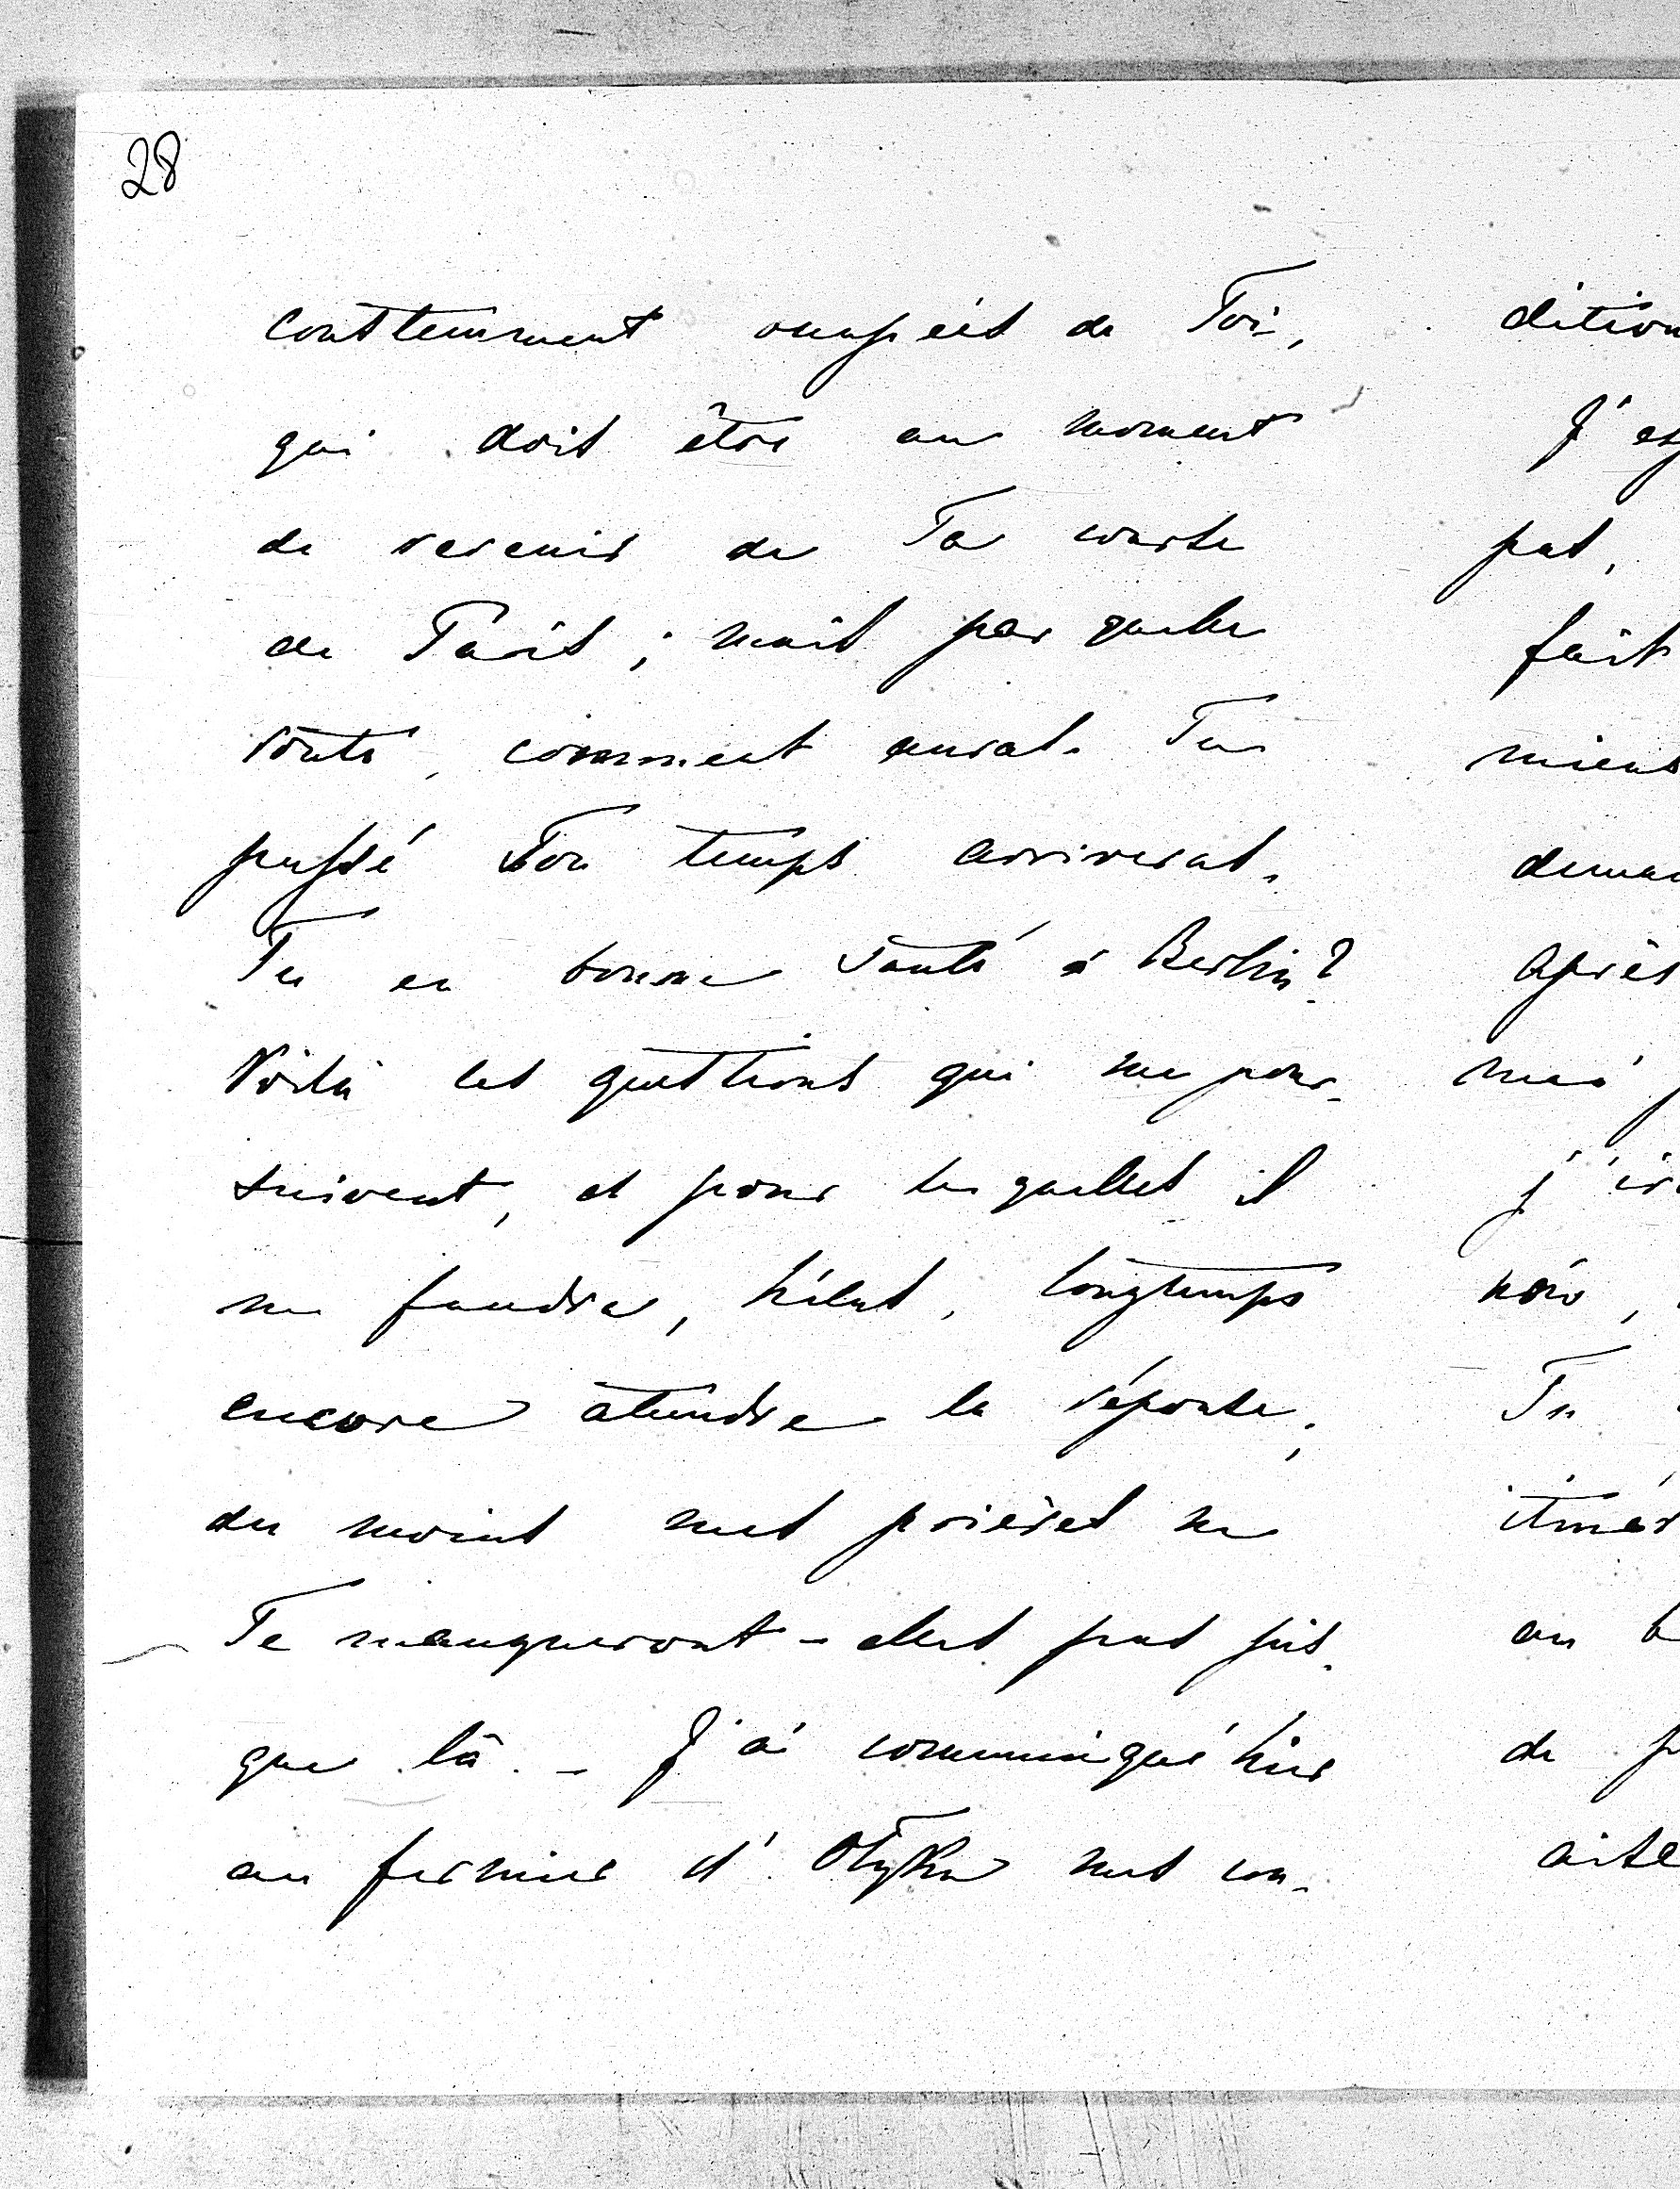 28
constemment occupées de Toi,
qui doit être au moment
de revenir de Ta course
de Paris ; mais par quelle
route, comment auras-Tu
passé Ton temps arriveras-
Tu en bonne santé à Berlin?
Voilà les questions qui me pour-
suivent, et pour lesquelles il
me faudra, hélas, longtemps
encore atendre la réponse;
du moins mes prières ne
Te manqueront-elles pas jus-
que là. - J'ai communiqué hier
au fermier d'Olyka mes con-
dition
J'es
pas,
fait
mieus
deman
après
j'ir
noir,
Tu
itinér
au b
de p
aise